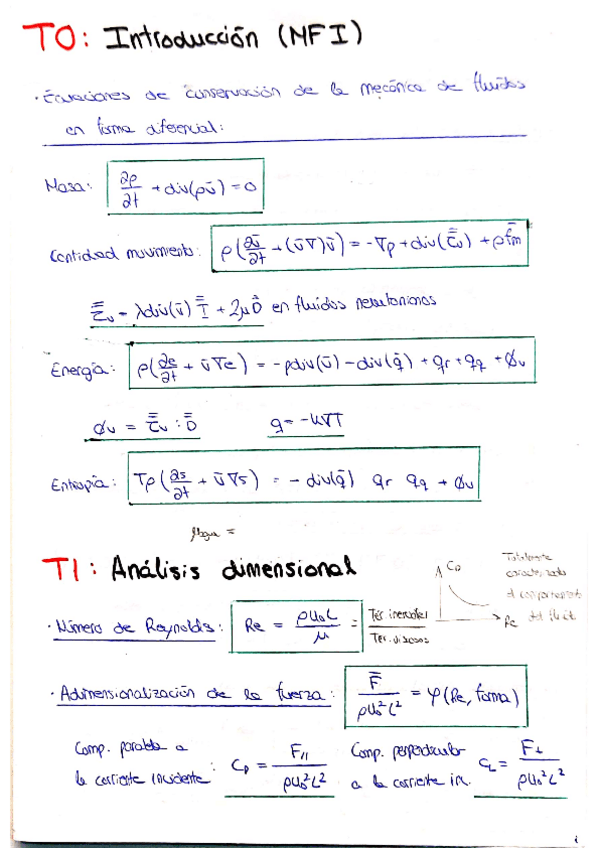 T0: Introducción (MFI)
· Ecuaciones de conservación de la mecánica de fluidos
en forma diferencial:
Masa: ∂ρ/∂t + div(ρū) = 0
Cantidad movimiento: ρ(∂ū/∂t + (ū∇)ū) = -∇p + div(τ̿ᵤ) + ρf̄m
τ̿ᵤ = λdiv(ū) I̿ + 2μD̿ en fluidos newtonianos
Energía: ρ(∂e/∂t + ū∇e) = -pdiv(ū) - div(q̄) + qr + qq + ϕᵤ
ϕᵤ = τ̿ᵤ : D̿ q = -k∇T
Entropía: Tρ(∂s/∂t + ū∇s) = - div(q̄) qr qq + ϕᵤ
μagua =
T1: Análisis dimensional
CD
Totalmente
caracterizado
el comportamiento
del fluido
Re
· Número de Reynolds: Re = ρU₀L/μ = Tér inerciales/Tér. viscosos
· Adimensionalización de la fuerza: F̄/ρU₀²L² = φ(Re, forma)
Comp. paralela a
la corriente incidente: CD = F∥/ρU₀²L²
Comp. perpendicular
a la corriente in. CL = F⊥/ρU₀²L²